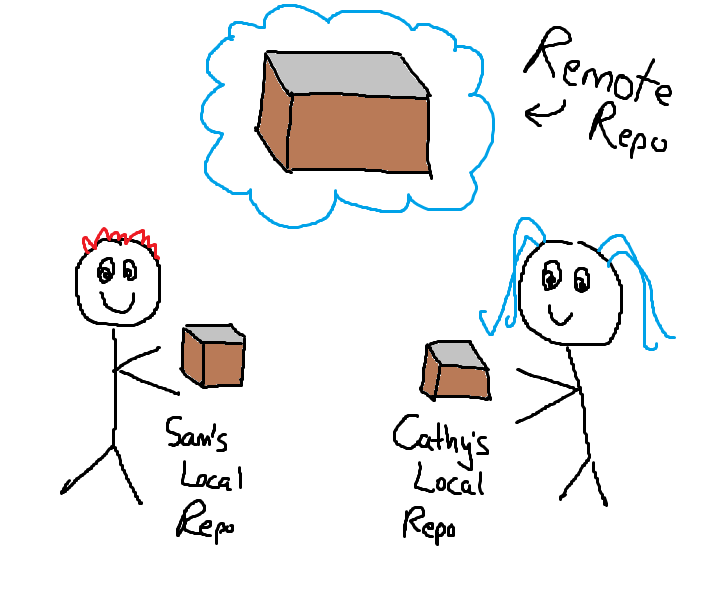 Remote
Repo
Sam's
Local
Repo
Cathy's
Local
Repo